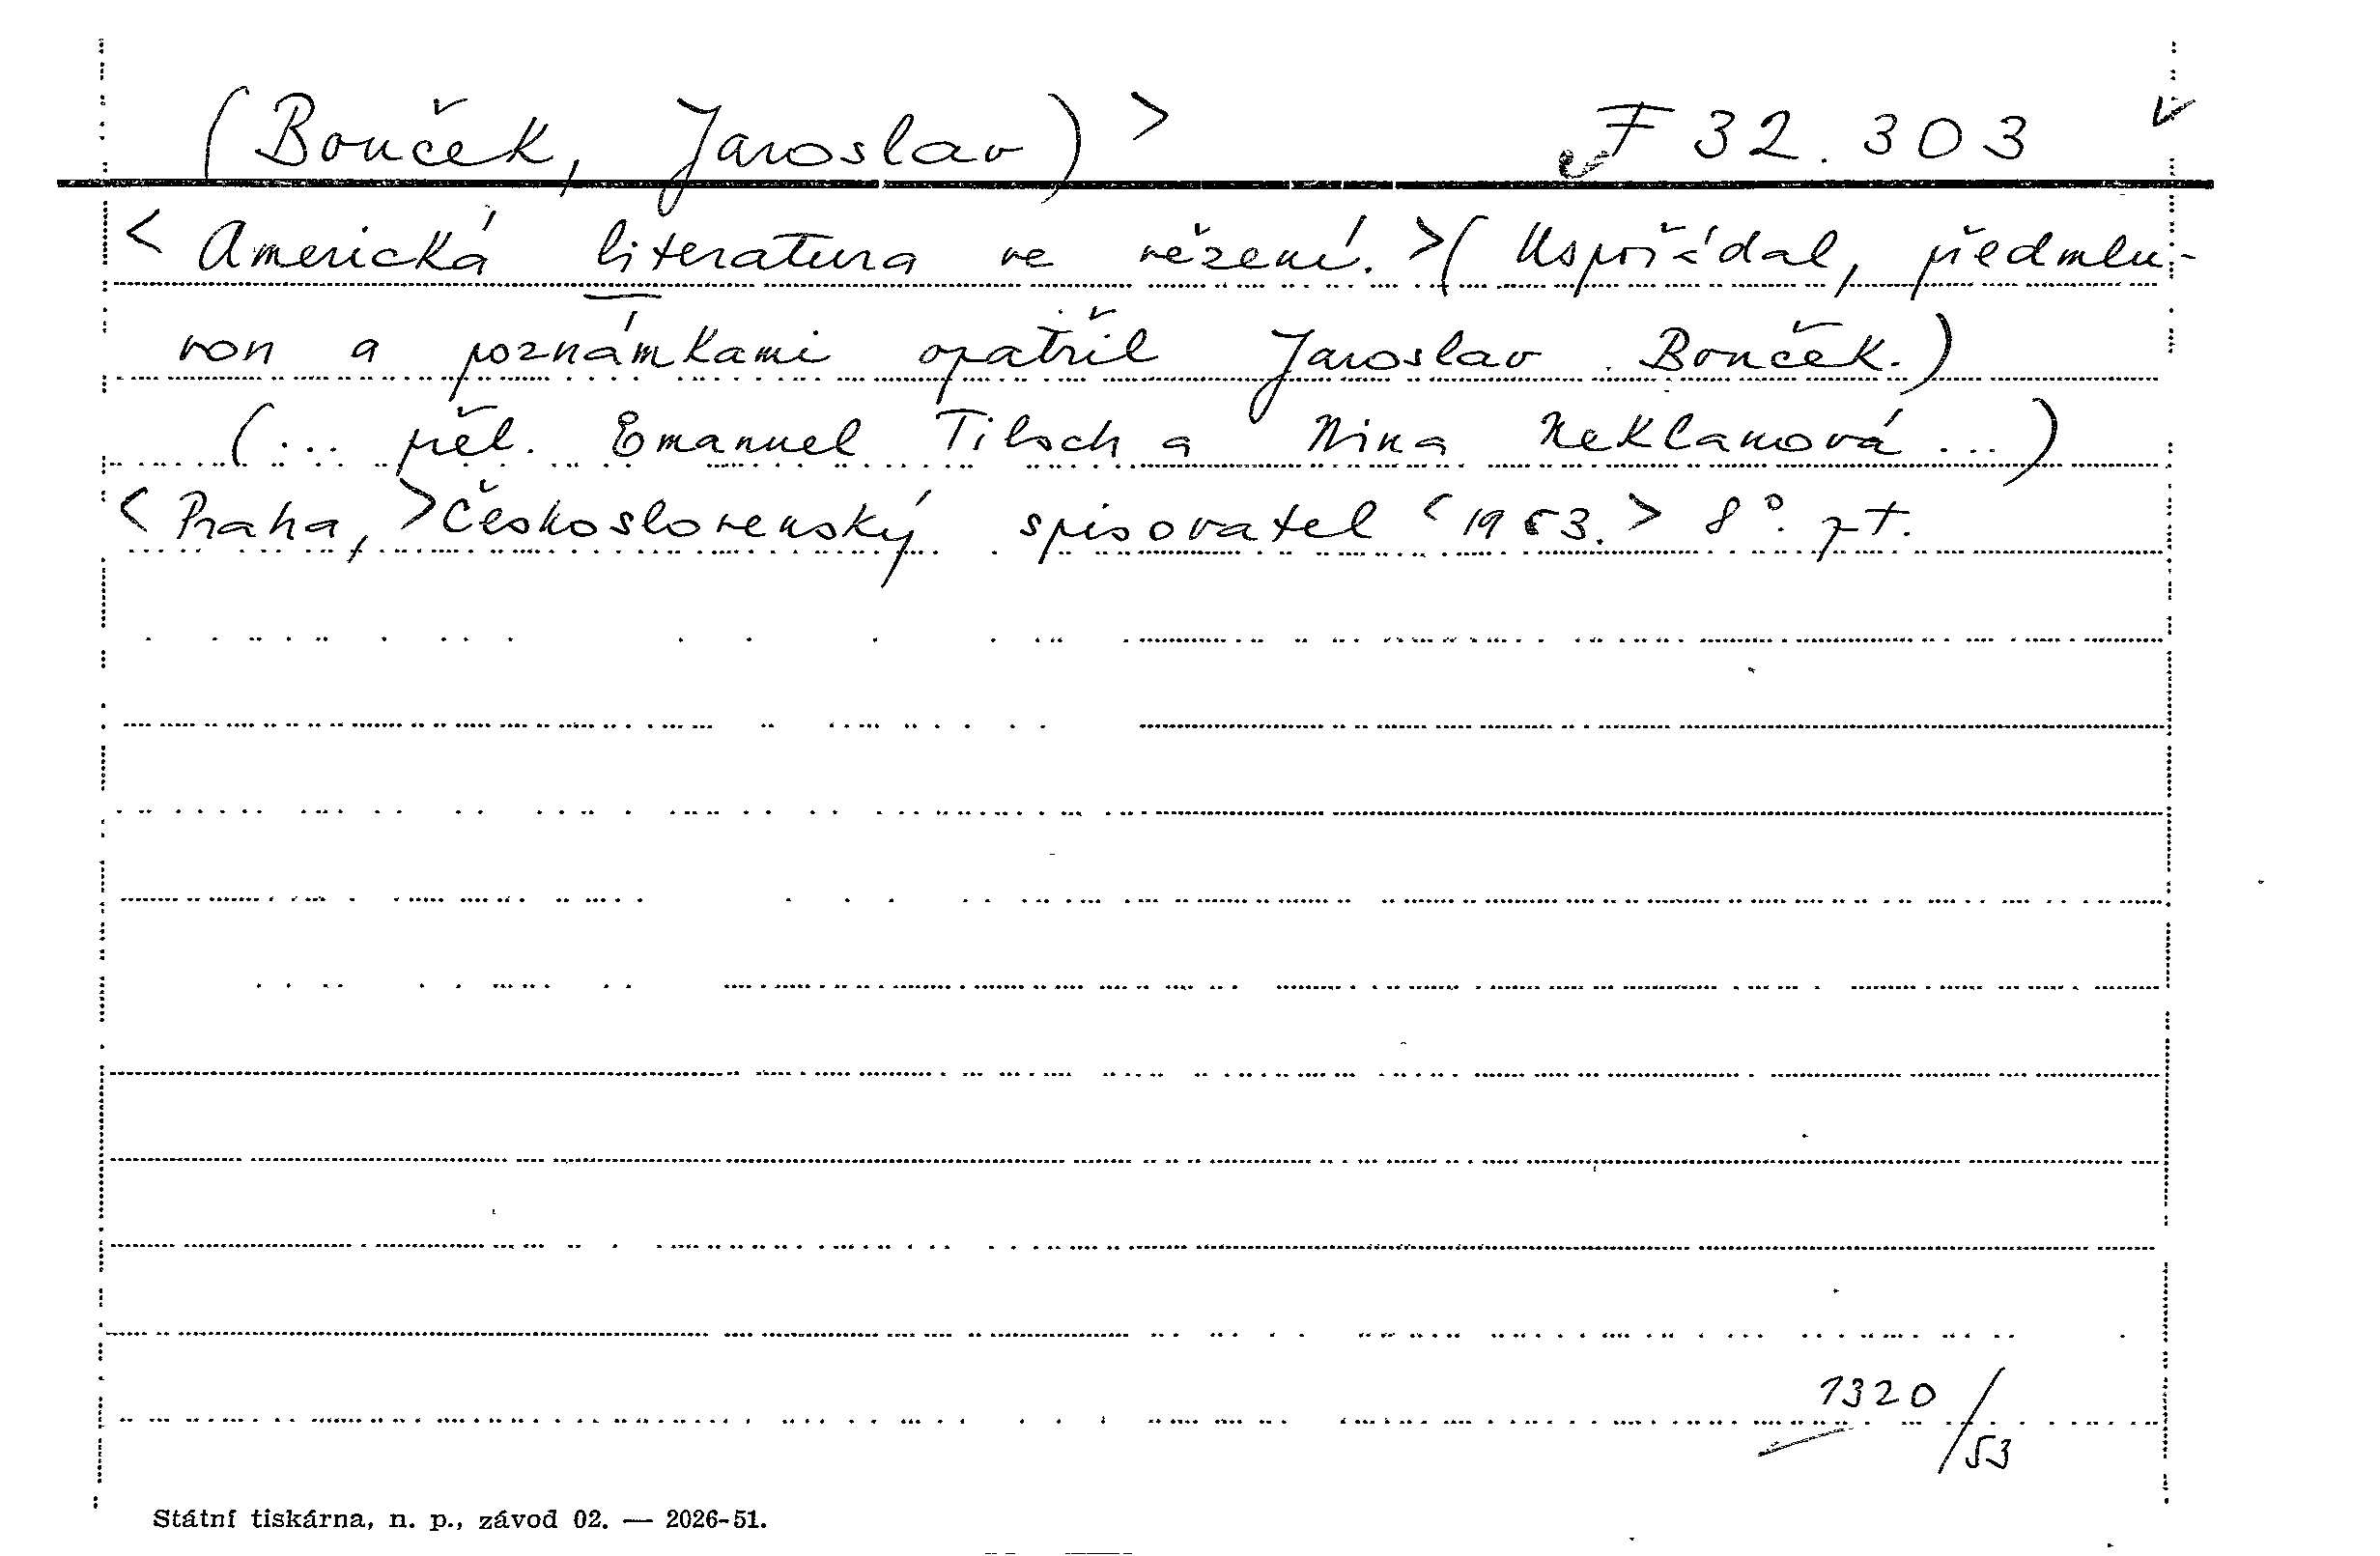 (Bouček, Jaroslav) > F 32.303
< Americká literatura ve vězení. >( Uspořádal, předmlu-
vou a poznámkami opatřil Jaroslav Bouček.)
(... přel. Emanuel Tilsch a Nina Neklanová ...)
< Praha, > Československý spisovatel < 1953. > 8°. pt.
1320/53
Státní tiskárna, n. p., závod 02. — 2026-51.